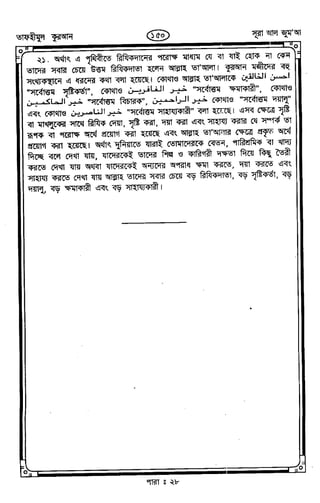 তাফহীমুল কুরআন
১৫০
সূরা আল জুম'আ
২১. অর্থাৎ এ পৃথিবীতে রিযিকদানের পরোক্ষ মাধ্যম যে বা যাই হোক না কেন
তাদের সবার চেয়ে উত্তম রিযিকদাতা হলেন আল্লাহ তা'আলা। কুরআন মজীদের বহু
সংখ্যক স্থানে এ ধরনের কথা বলা হয়েছে। কোথাও আল্লাহ তা'আলাকে احسن الخالقين
"সর্বোত্তম সৃষ্টিকর্তা", কোথাও خير الغافرين "সর্বোত্তম ক্ষমাকারী", কোথাও
خير الحاكمين "সর্বোত্তম বিচারক", কোথাও خير الراحمين "সর্বোত্তম দয়ালু"
এবং কোথাও خير الناصرين "সর্বোত্তম সাহায্যকারী" বলা হয়েছে। এসব ক্ষেত্রে সৃষ্টি
বা মাখলুকের সাথে রিযিক দেয়া, সৃষ্টি করা, দয়া করা এবং সাহায্য করার যে সম্পর্ক তা
রূপক বা পরোক্ষ অর্থে প্রয়োগ করা হয়েছে এবং আল্লাহ তা'আলার ক্ষেত্রে প্রকৃত অর্থে
প্রয়োগ করা হয়েছে। অর্থাৎ দুনিয়াতে যারাই তোমাদেরকে বেতন, পারিশ্রমিক বা খাদ্য
দিচ্ছে বলে দেখা যায়, যাদেরকেই তাদের শিল্প ও কারিগরী দক্ষতা দিয়ে কিছু তৈরী
করতে দেখা যায় অথবা যাদেরকেই অন্যদের অপরাধ ক্ষমা করতে, দয়া করতে এবং
সাহায্য করতে দেখা যায় আল্লাহ তাদের সবার চেয়ে বড় রিযিকদাতা, বড় সৃষ্টিকর্তা, বড়
দয়ালু, বড় ক্ষমাকারী এবং বড় সাহায্যকারী।
পারা : ২৮